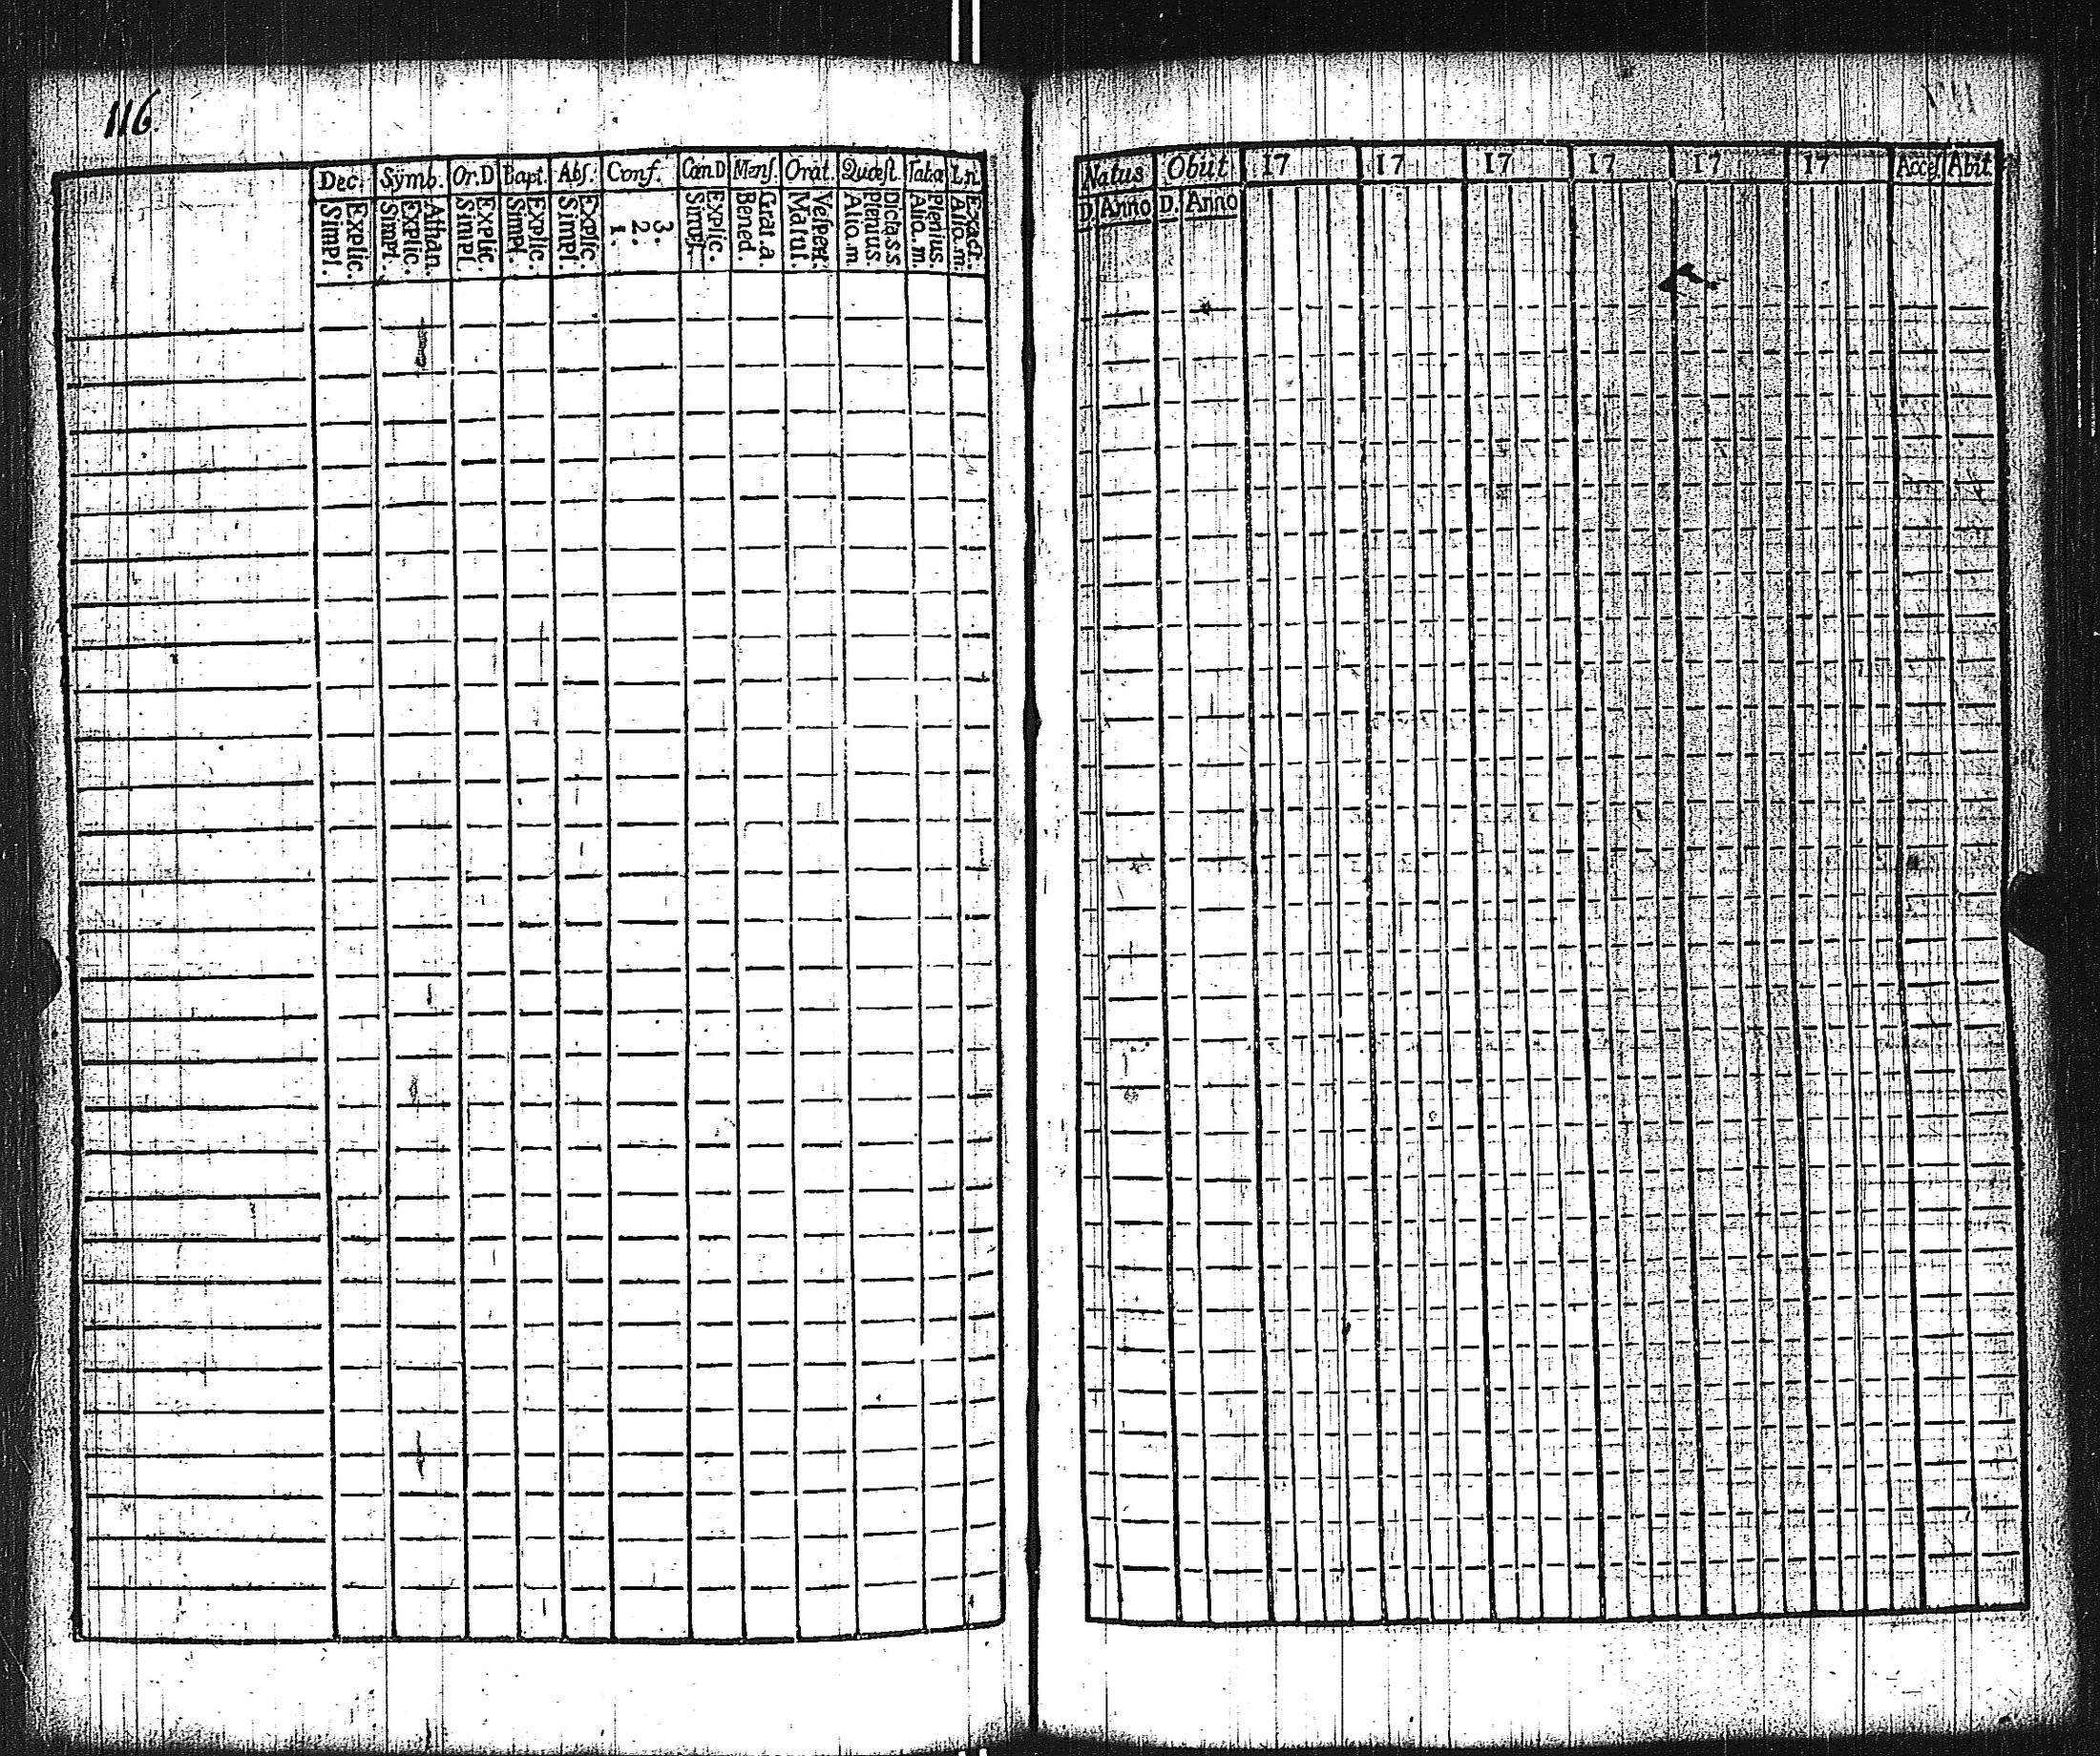 116.
Dec. Symb. Or.D Bapt. Abs. Conf. Cœn.D Mens. Orat. Quæst. Taba L.n.
Explic. Simpl. Athan. Explic. Simpl. Explic. Simpl. Explic. Simpl. Explic. Simpl. 3. 2. 1. Explic. Simpl. Grat.a. Bened. Vesper. Matut. Dicta.s.s. Plenius. Alio.m. Plenius. Alio.m. Exact. Alio.m.
Natus Obiit 17 17 17 17 17 17 Acces. Abit
D. Anno D. Anno